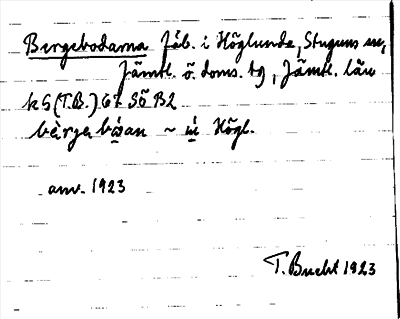 Bergebodarna fäb. i Höglunda, Stuguns sn,
Jämtl. ö. doms. tg, Jämtl. län
kS (T.B.) 67 SÖ B2
Högl.
anv. 1923
T. Bucht 1923